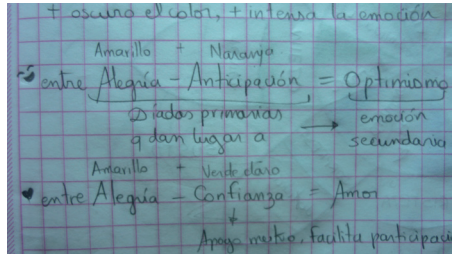 + oscuro el color, + intensa la emoción
Amarillo + Naranja
entre Alegría - Anticipación = Optimismo
Díadas primarias
q dan lugar a → emoción
secundaria
Amarillo + Verde claro
entre Alegría - Confianza = Amor
↓
Apoyo mutuo, facilita participaci